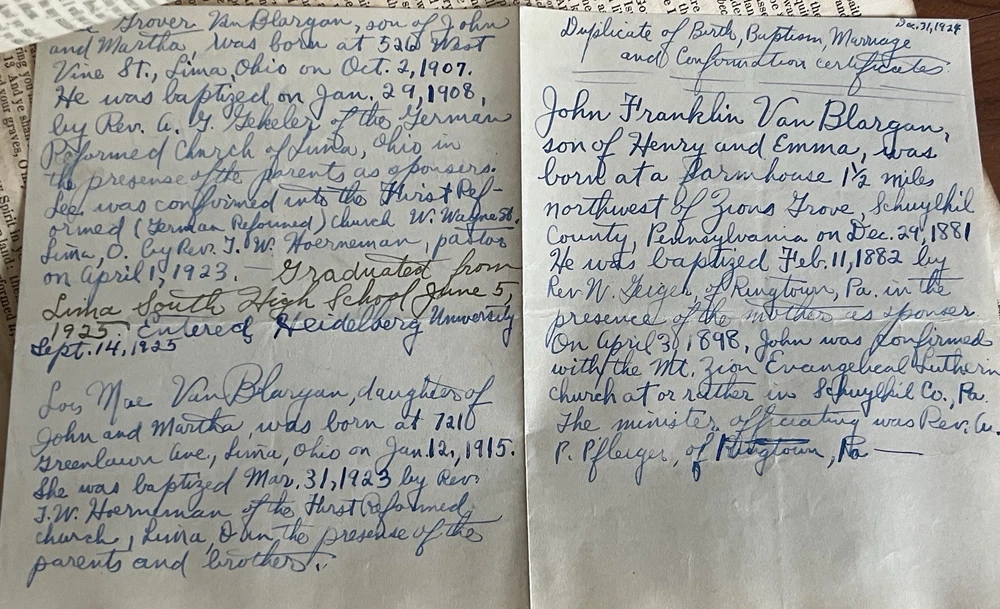 Grover Van Blargan, son of John
and Martha, was born at 526 West
Vine St., Lima, Ohio on Oct. 2, 1907.
He was baptized on Jan. 29, 1908,
by Rev. A. G. Gekeler of the German
Reformed Church of Lima, Ohio in
the presense of the parents as sponsers.
Lee was confirmed into the First Ref-
ormed (German Reformed) Church W. Wayne St.
Lima, O. by Rev. T. W. Hoerneman, pastor
on April 1, 1923. — Graduated from
Lima South High School June 5,
1925 Entered Heidelberg University
Sept. 14, 1925
Lois Mae Van Blargan, daughter of
John and Martha, was born at 7210
Greenlawn Ave, Lima, Ohio on Jan. 12, 1915.
She was baptized Mar. 31, 1923 by Rev.
T. W. Hoerneman of the First Reformed
church, Lima, O in the presense of the
parents and brothers.
Dec. 31, 1924
Duplicate of Birth, Baptism, Marriage
and Confirmation certificates.
John Franklin Van Blargan,
son of Henry and Emma, was
born at a farmhouse 1½ miles
northwest of Zions Grove, Schuylkil
County, Pennsylvania on Dec. 29, 1881
He was baptized Feb. 11, 1882 by
Rev. W. Geiger, of Ringtown, Pa. in the
presence of the mother as sponser.
On April 3, 1898, John was confirmed
with the Mt. Zion Evangelical Luthern
church at or rather in Schuylkil Co., Pa.
The minister officiating was Rev. A.
P. Pfleiger, of Ringtown, Pa —